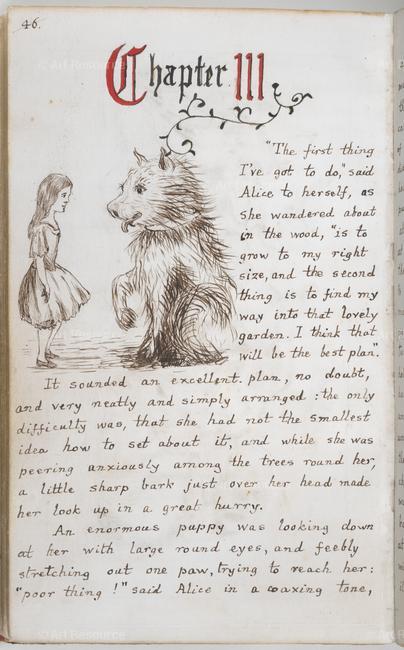 46.
Chapter III
"The first thing
I've got to do," said
Alice to herself, as
she wandered about
in the wood, "is to
grow to my right
size, and the second
thing is to find my
way into that lovely
garden. I think that
will be the best plan."
It sounded an excellent plan, no doubt,
and very neatly and simply arranged: the only
difficulty was, that she had not the smallest
idea how to set about it, and while she was
peering anxiously among the trees round her,
a little sharp bark just over her head made
her look up in a great hurry.
An enormous puppy was looking down
at her with large round eyes, and feebly
stretching out one paw, trying to reach her:
"poor thing!" said Alice in a coaxing tone,
© Art Resource